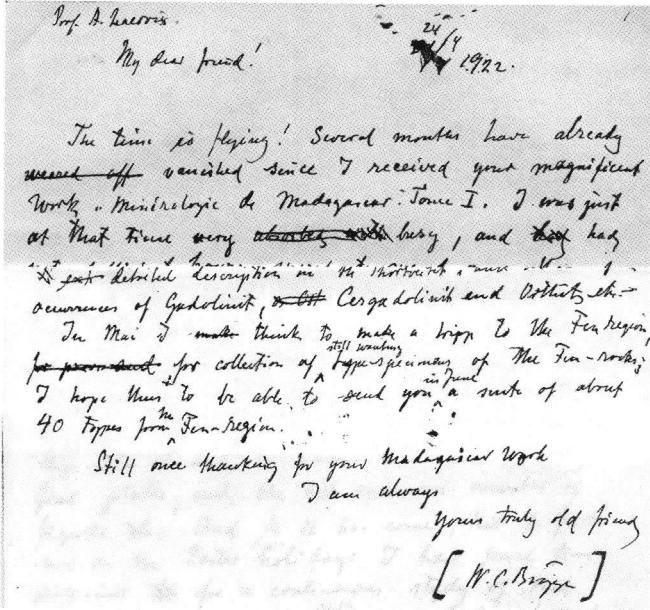 Prof. A. Lacroix.
24/4 1922.
My dear friend!
The time is flying! Several months have already
weared off vanished since I received your magnificent
work „Minéralogie de Madagascar". Tome I. I was just
at that time very absorbed with busy, and had
detailed description in the
occurrences of Gadolinit, Cergadolinit and Orthit, etc.
In Mai I think to make a tripp to the Fen region,
for collection of still wanting type-specimens of the Fen-rocks;
I hope thus to be able to send you in June a suite of about
40 types from the Fen-region.
Still once thanking for your Madagascar work
I am always
yours truly old friend
[W. C. Brøgger]